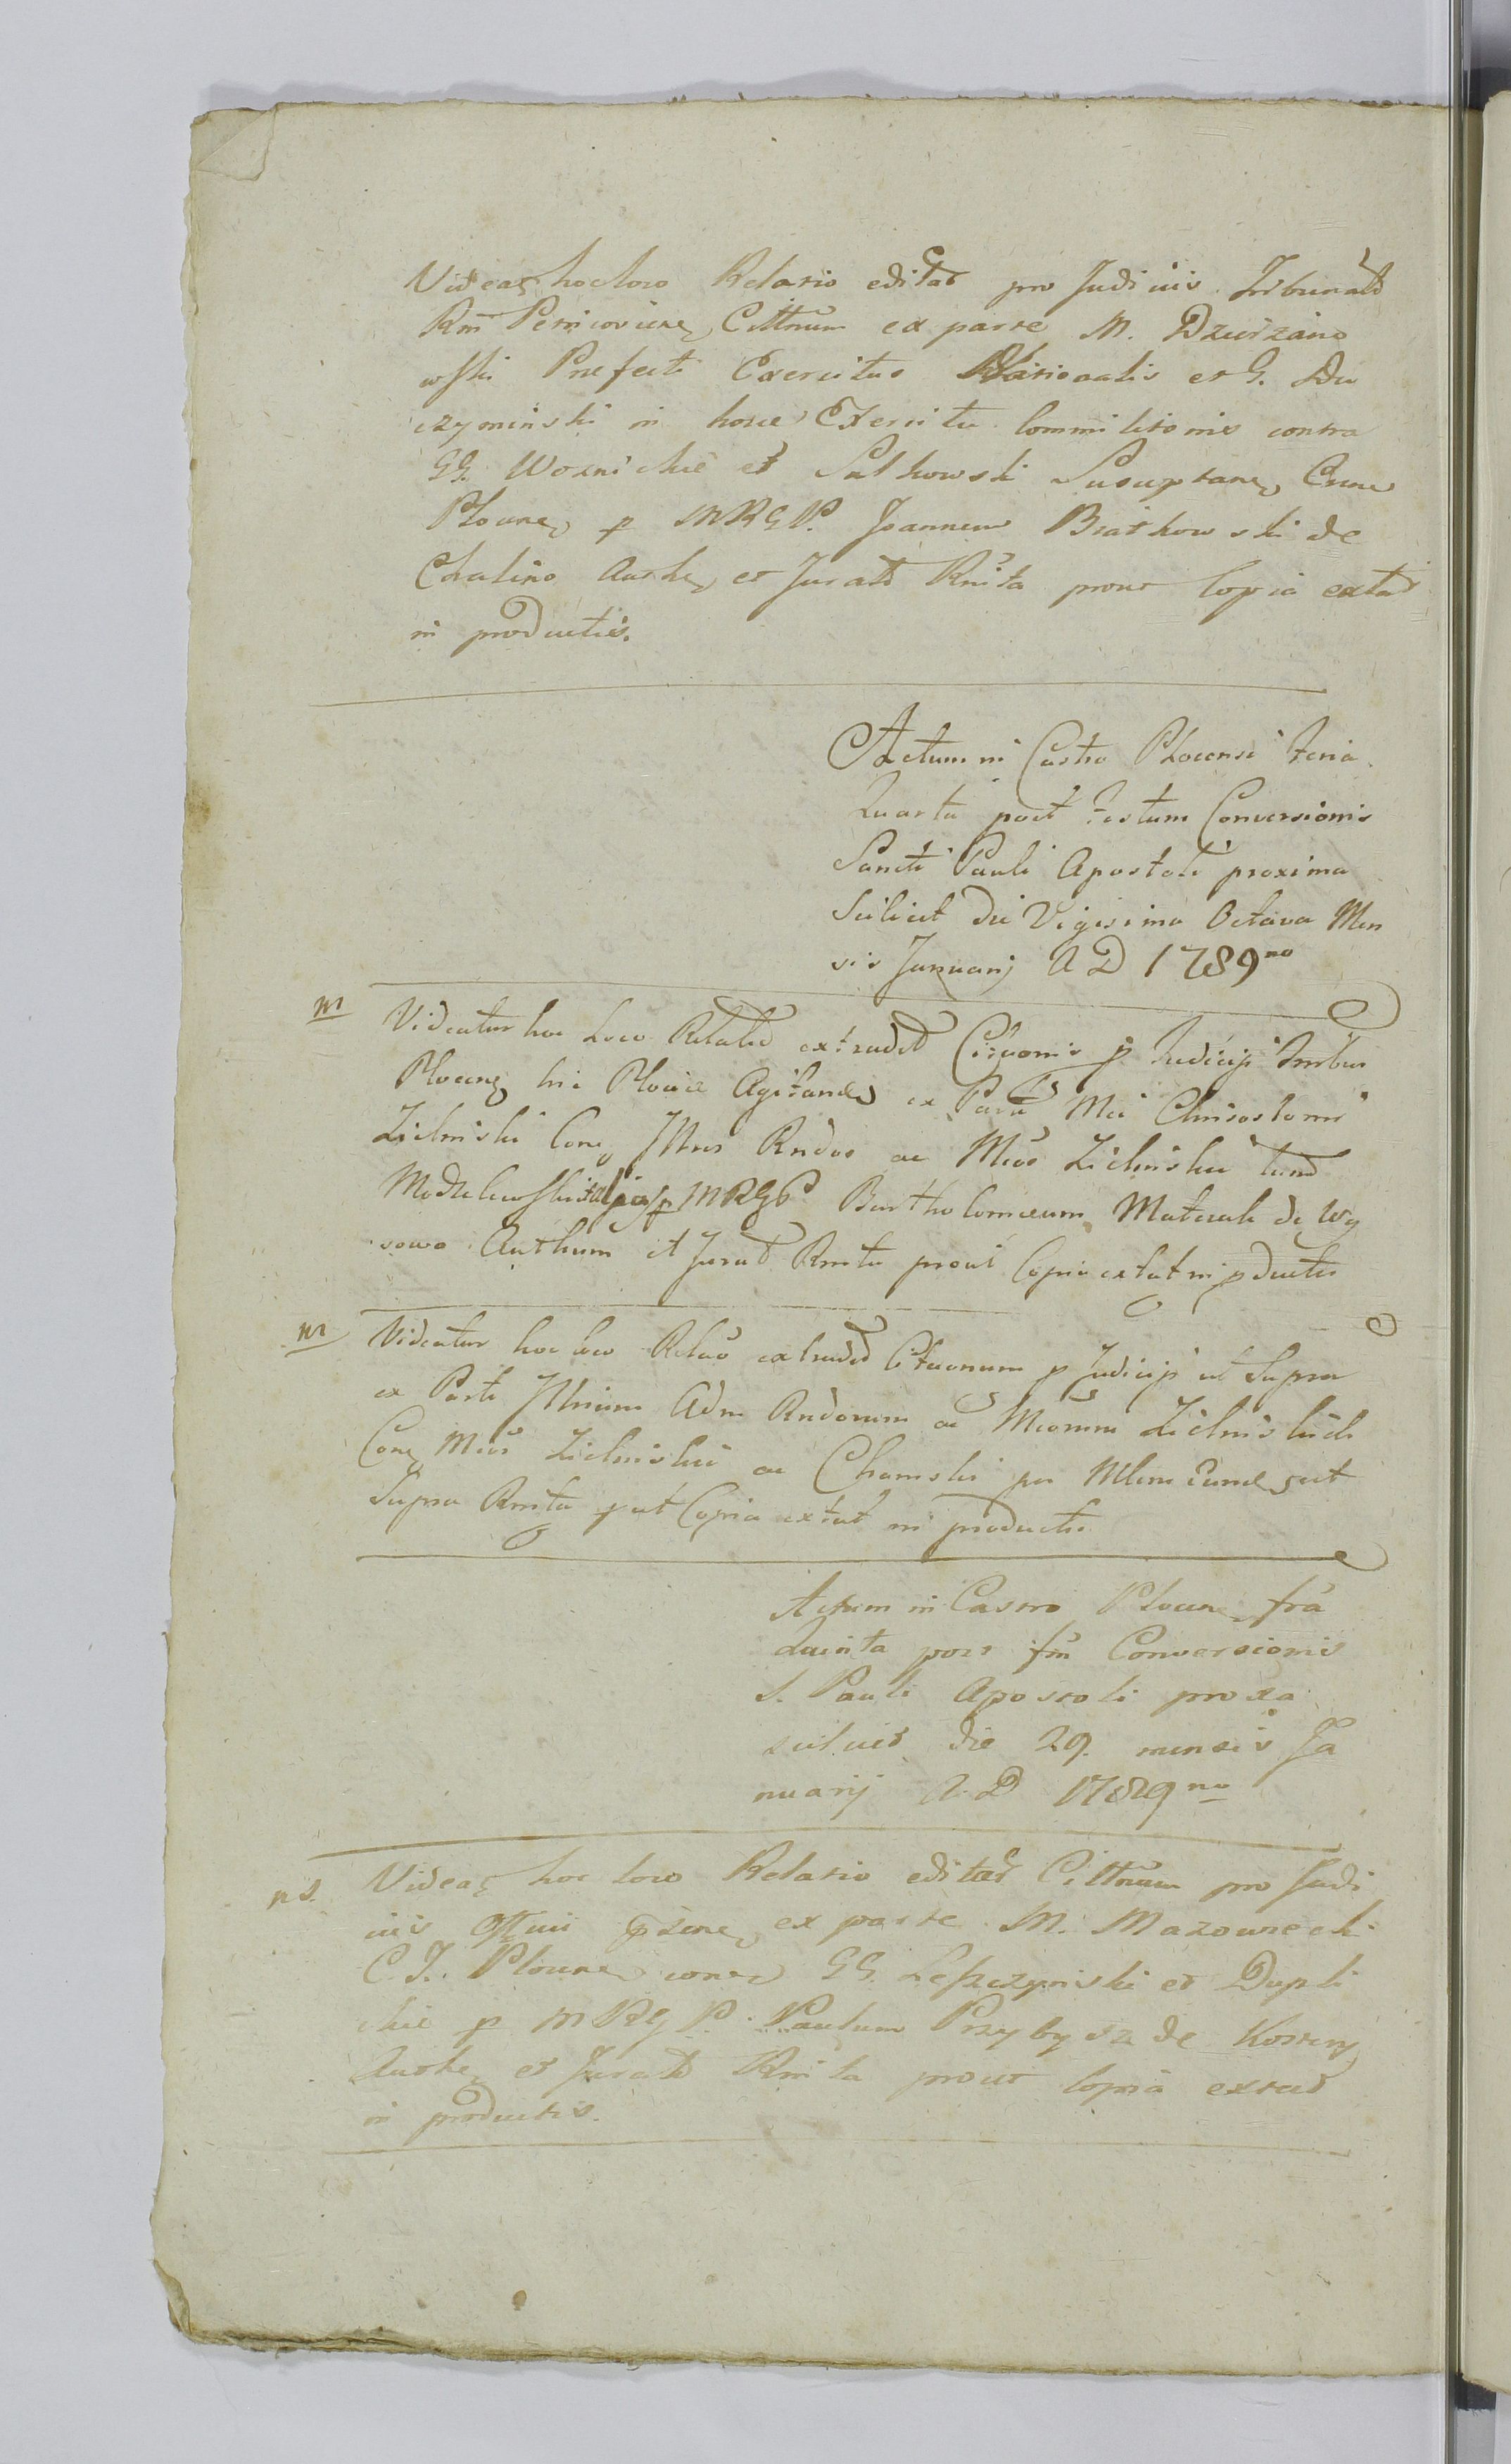 Videat hocloco Relatio editar pro Judiciis Tribunald
Rm Petricovien Cittnum ex parte M. Dzierzano
wski Prefecti Exercitus Nationalis et G. Du
czyminski in hocce Exercitu Commilitonis contra
GG. Woznickie et Sulkowski Susceptan
Plocen p MRGP. Joannem Bratkowski de
Chalino Authen et Jurald Rnita prout Copia extat
in productis.
Actum in Castro Plocensi Feria
Quarta post Festum Conversionis
Sancti Pauli Apostoli proxima
Scilicet die Vigesima Octava Men
sis Januarij A D 1789no
m Videatur hoc Loco Relatio extradit Cituonis p Judicijs
Plocen hic Plocie Agitand ex Parte Mci Chrisostomi
Zielinski Con Illres Rndos ac Mcos Zielinskie
Modzelewski MRGP Bartholomaeum Matusiak de Wy
sowo Authum et Jurat Rnita prout Copia extat in pductis
m Videatur hoc loco Relao extradit Cituonum p Judicijs ut Supra
ex Parte Illrium Adm Rndorum ac Mcorum Zielinskich
Con Mcos Zielinskie ac Chamski per Mlem Eundem ut
Supra Rnita put Copia extat in productis
Actum in Castro Plocen fra
Quinta post fm Conversionis
S. Pauli Apostoli proxa
scilicet die 29. mensis Ja
nuarij A. D 1789no
Videat hoc loco Relatio editar Cittnum pro Judi
ciis Offcii ex parte M. Mazowiecki
C. T. Plocen contra GG. Leszczynski et Dupli
ckie p MRGP. Paulum Przybysz de
Authen et Jurald Rnita prout Copia extat
in productis.